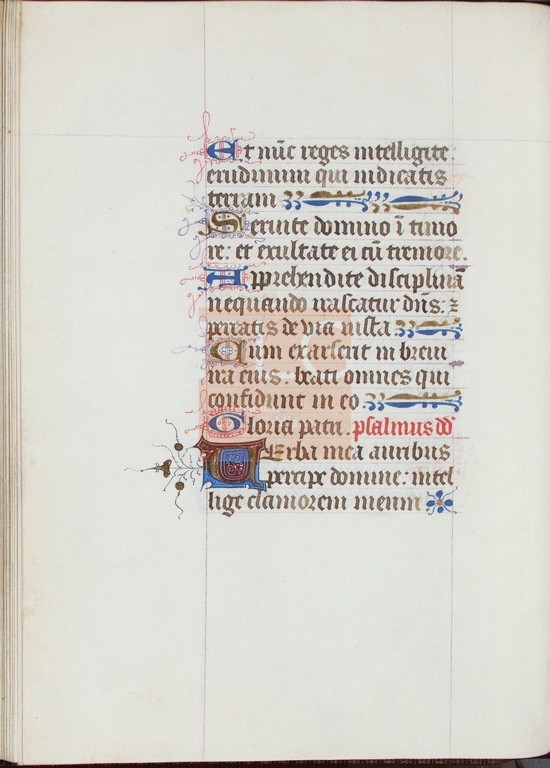 Et nūc reges intelligite:
erudimini qui iudicatis
terram
Seruite domino ī timo
re: et exultate ei cū tremore.
Apprehendite disciplinā
nequando irascatur dn̄s: ⁊
pereatis de via iusta
Cum exarserit in breui
ira eius: beati omnes qui
confidunt in eo
Gloria patri. psalmus dd̄
Uerba mea auribus
percipe domine: intel
lige clamorem meum